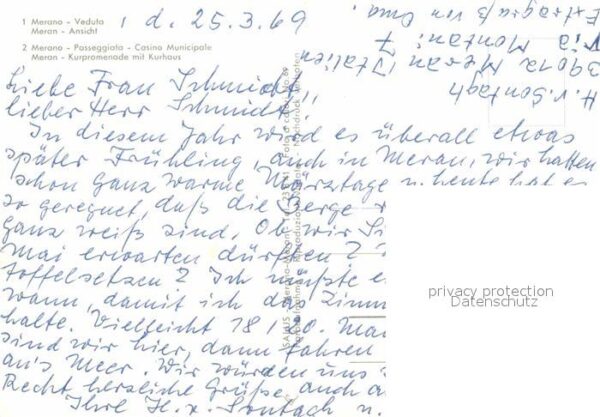 1 Merano - Veduta
Meran - Ansicht
2 Merano - Passeggiata - Casino Municipale
Meran - Kurpromenade mit Kurhaus
, d. 25.3.69
Liebe Frau Schmidt,
lieber Herr Schmidt,
In diesem Jahr wird es überall etwas
später Frühling, auch in Meran, wir hatten
schon ganz warme Märztage u. heute hat es
so geregnet, daß die Berge
ganz weiß sind. Ob wir Si
Mai erwarten dürfen?
toffelsetzen? Ich müßte e
wann, damit ich das Zimm
halte. Vielleicht 18 Mai
sind wir hier, dann fahren
an's Meer. Wir würden uns
Recht herzliche Grüße, auch
Ihre H. v. Sontagh u.
H. v. Sontagh
39012 Meran Italien
Via Montani 7
Extragruß von Oma
privacy protection
Datenschutz